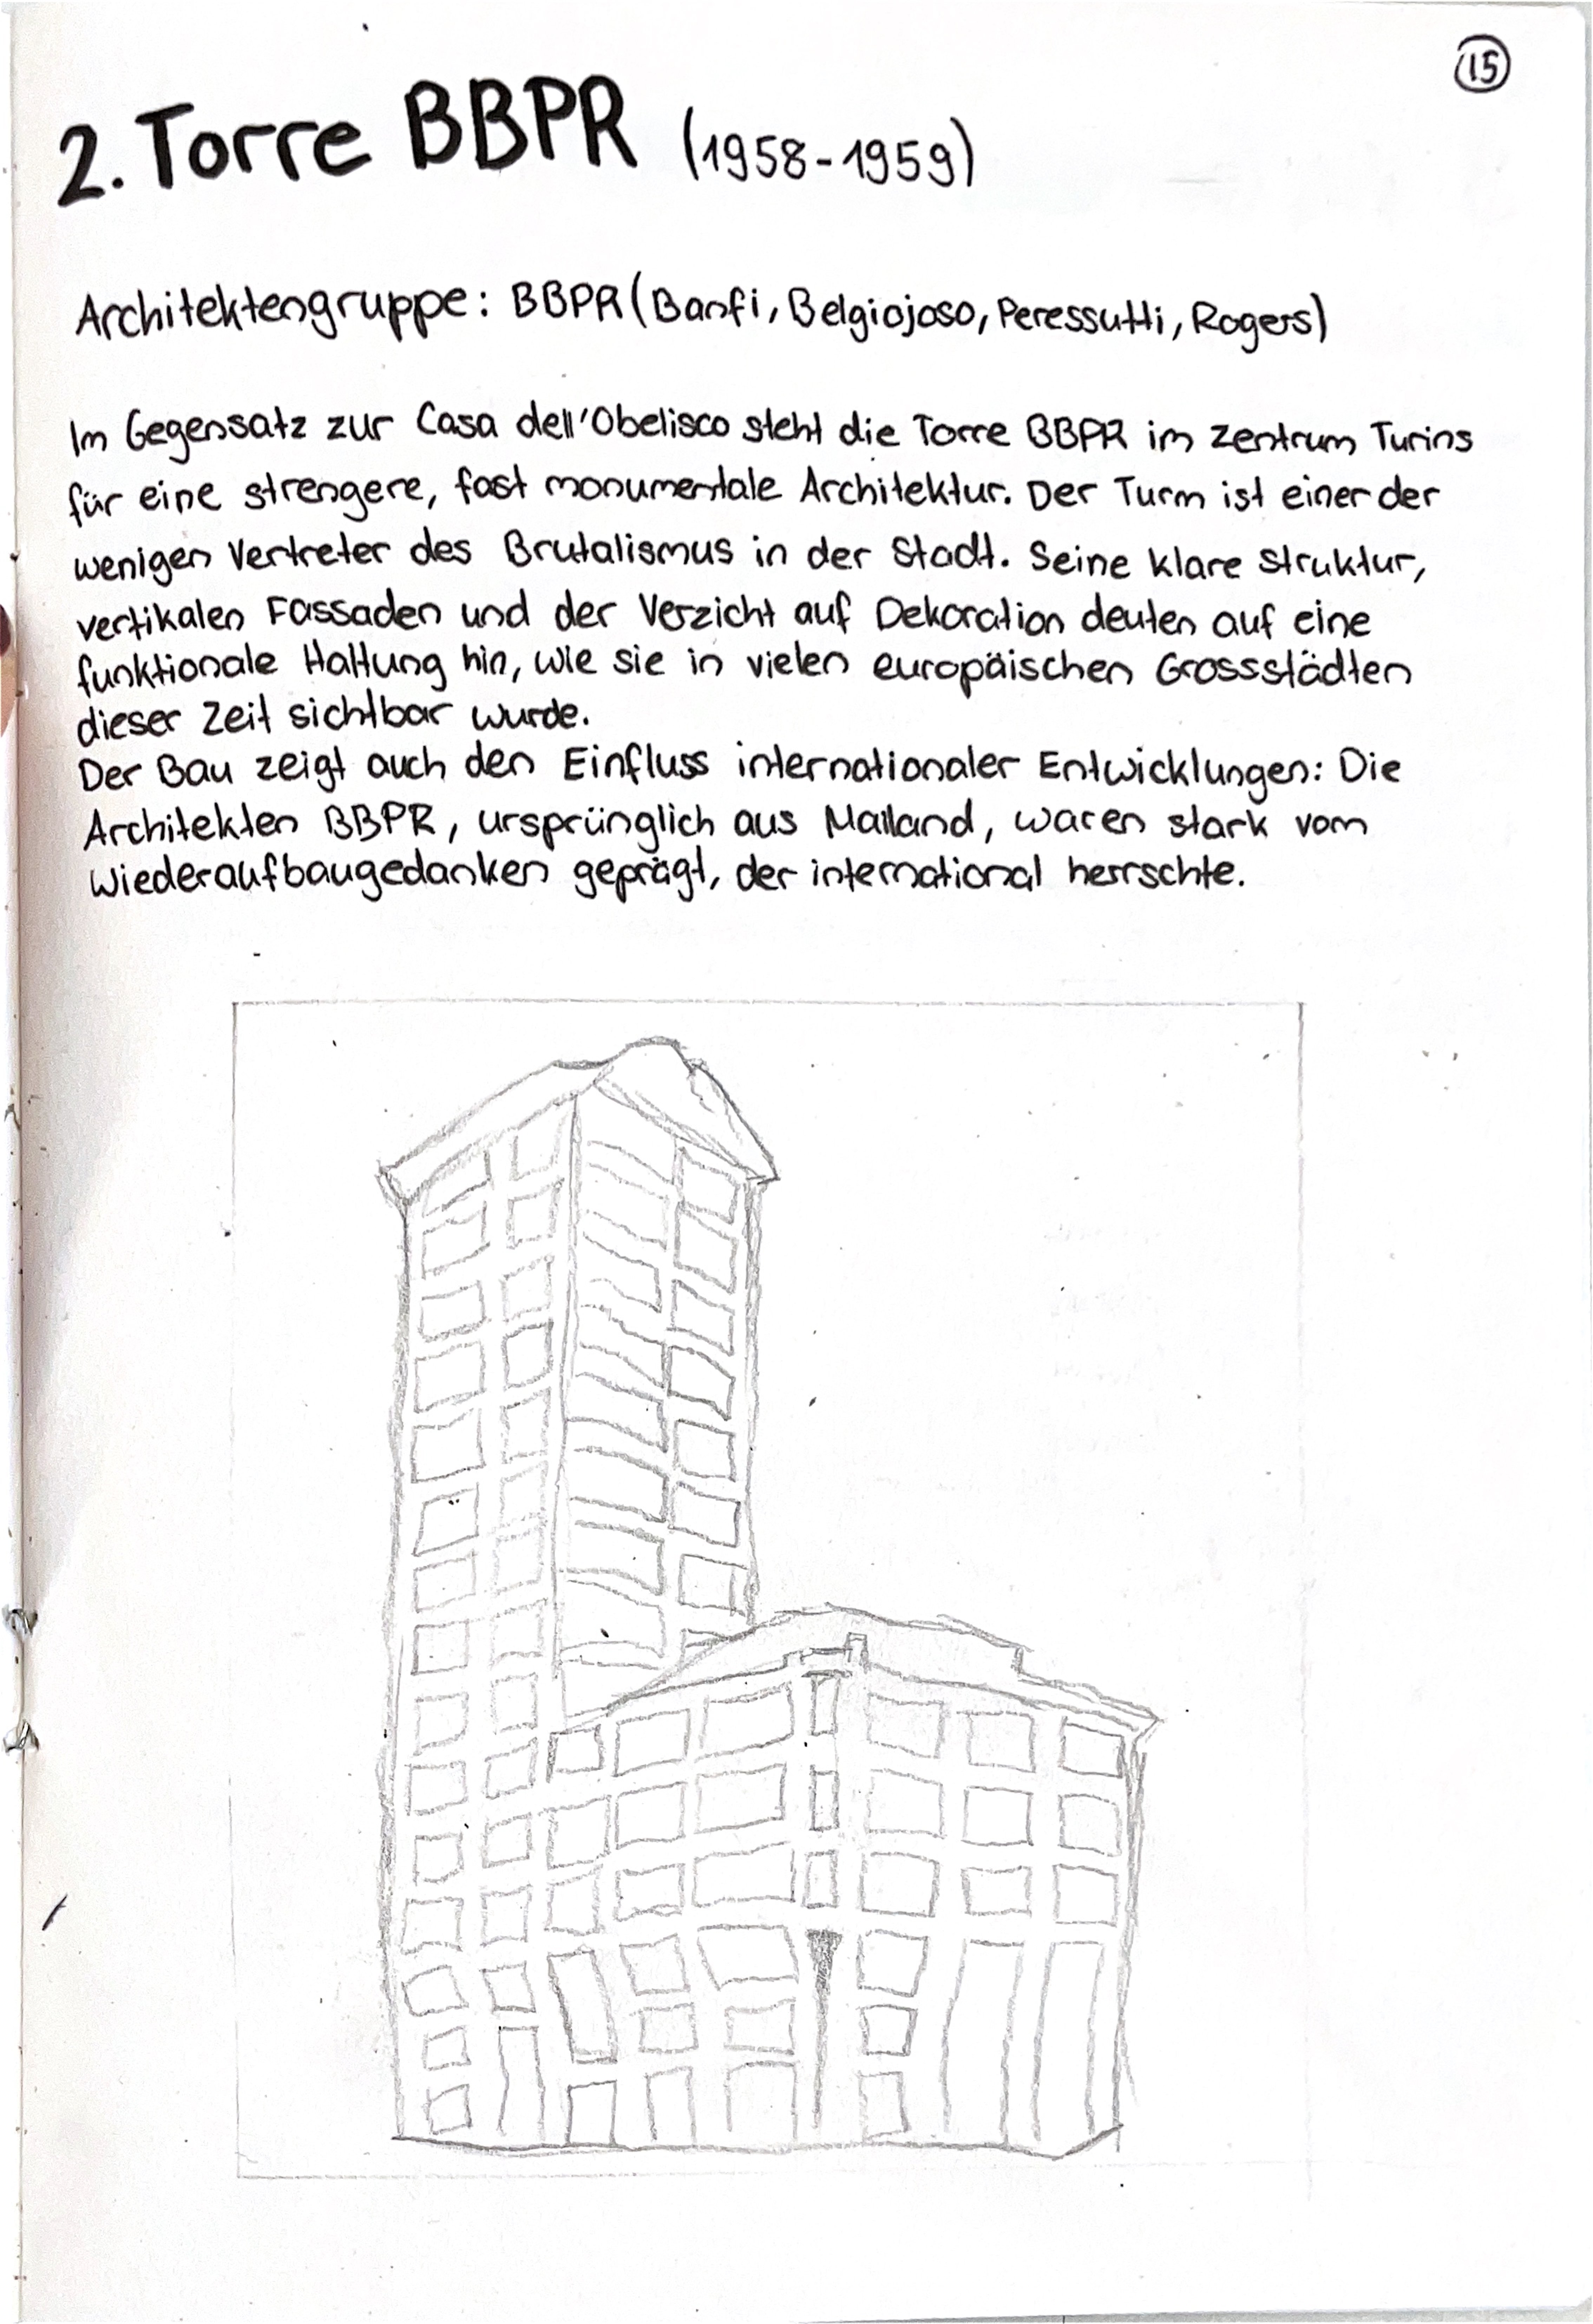 15
2. Torre BBPR (1958-1959)
Architektengruppe: BBPR (Banfi, Belgiojoso, Peressutti, Rogers)
Im Gegensatz zur Casa dell'Obelisco steht die Torre BBPR im Zentrum Turins
für eine strengere, fast monumentale Architektur. Der Turm ist einer der
wenigen Vertreter des Brutalismus in der Stadt. Seine klare Struktur,
vertikalen Fassaden und der Verzicht auf Dekoration deuten auf eine
funktionale Haltung hin, wie sie in vielen europäischen Grossstädten
dieser Zeit sichtbar wurde.
Der Bau zeigt auch den Einfluss internationaler Entwicklungen: Die
Architekten BBPR, ursprünglich aus Mailand, waren stark vom
Wiederaufbaugedanken geprägt, der international herrschte.